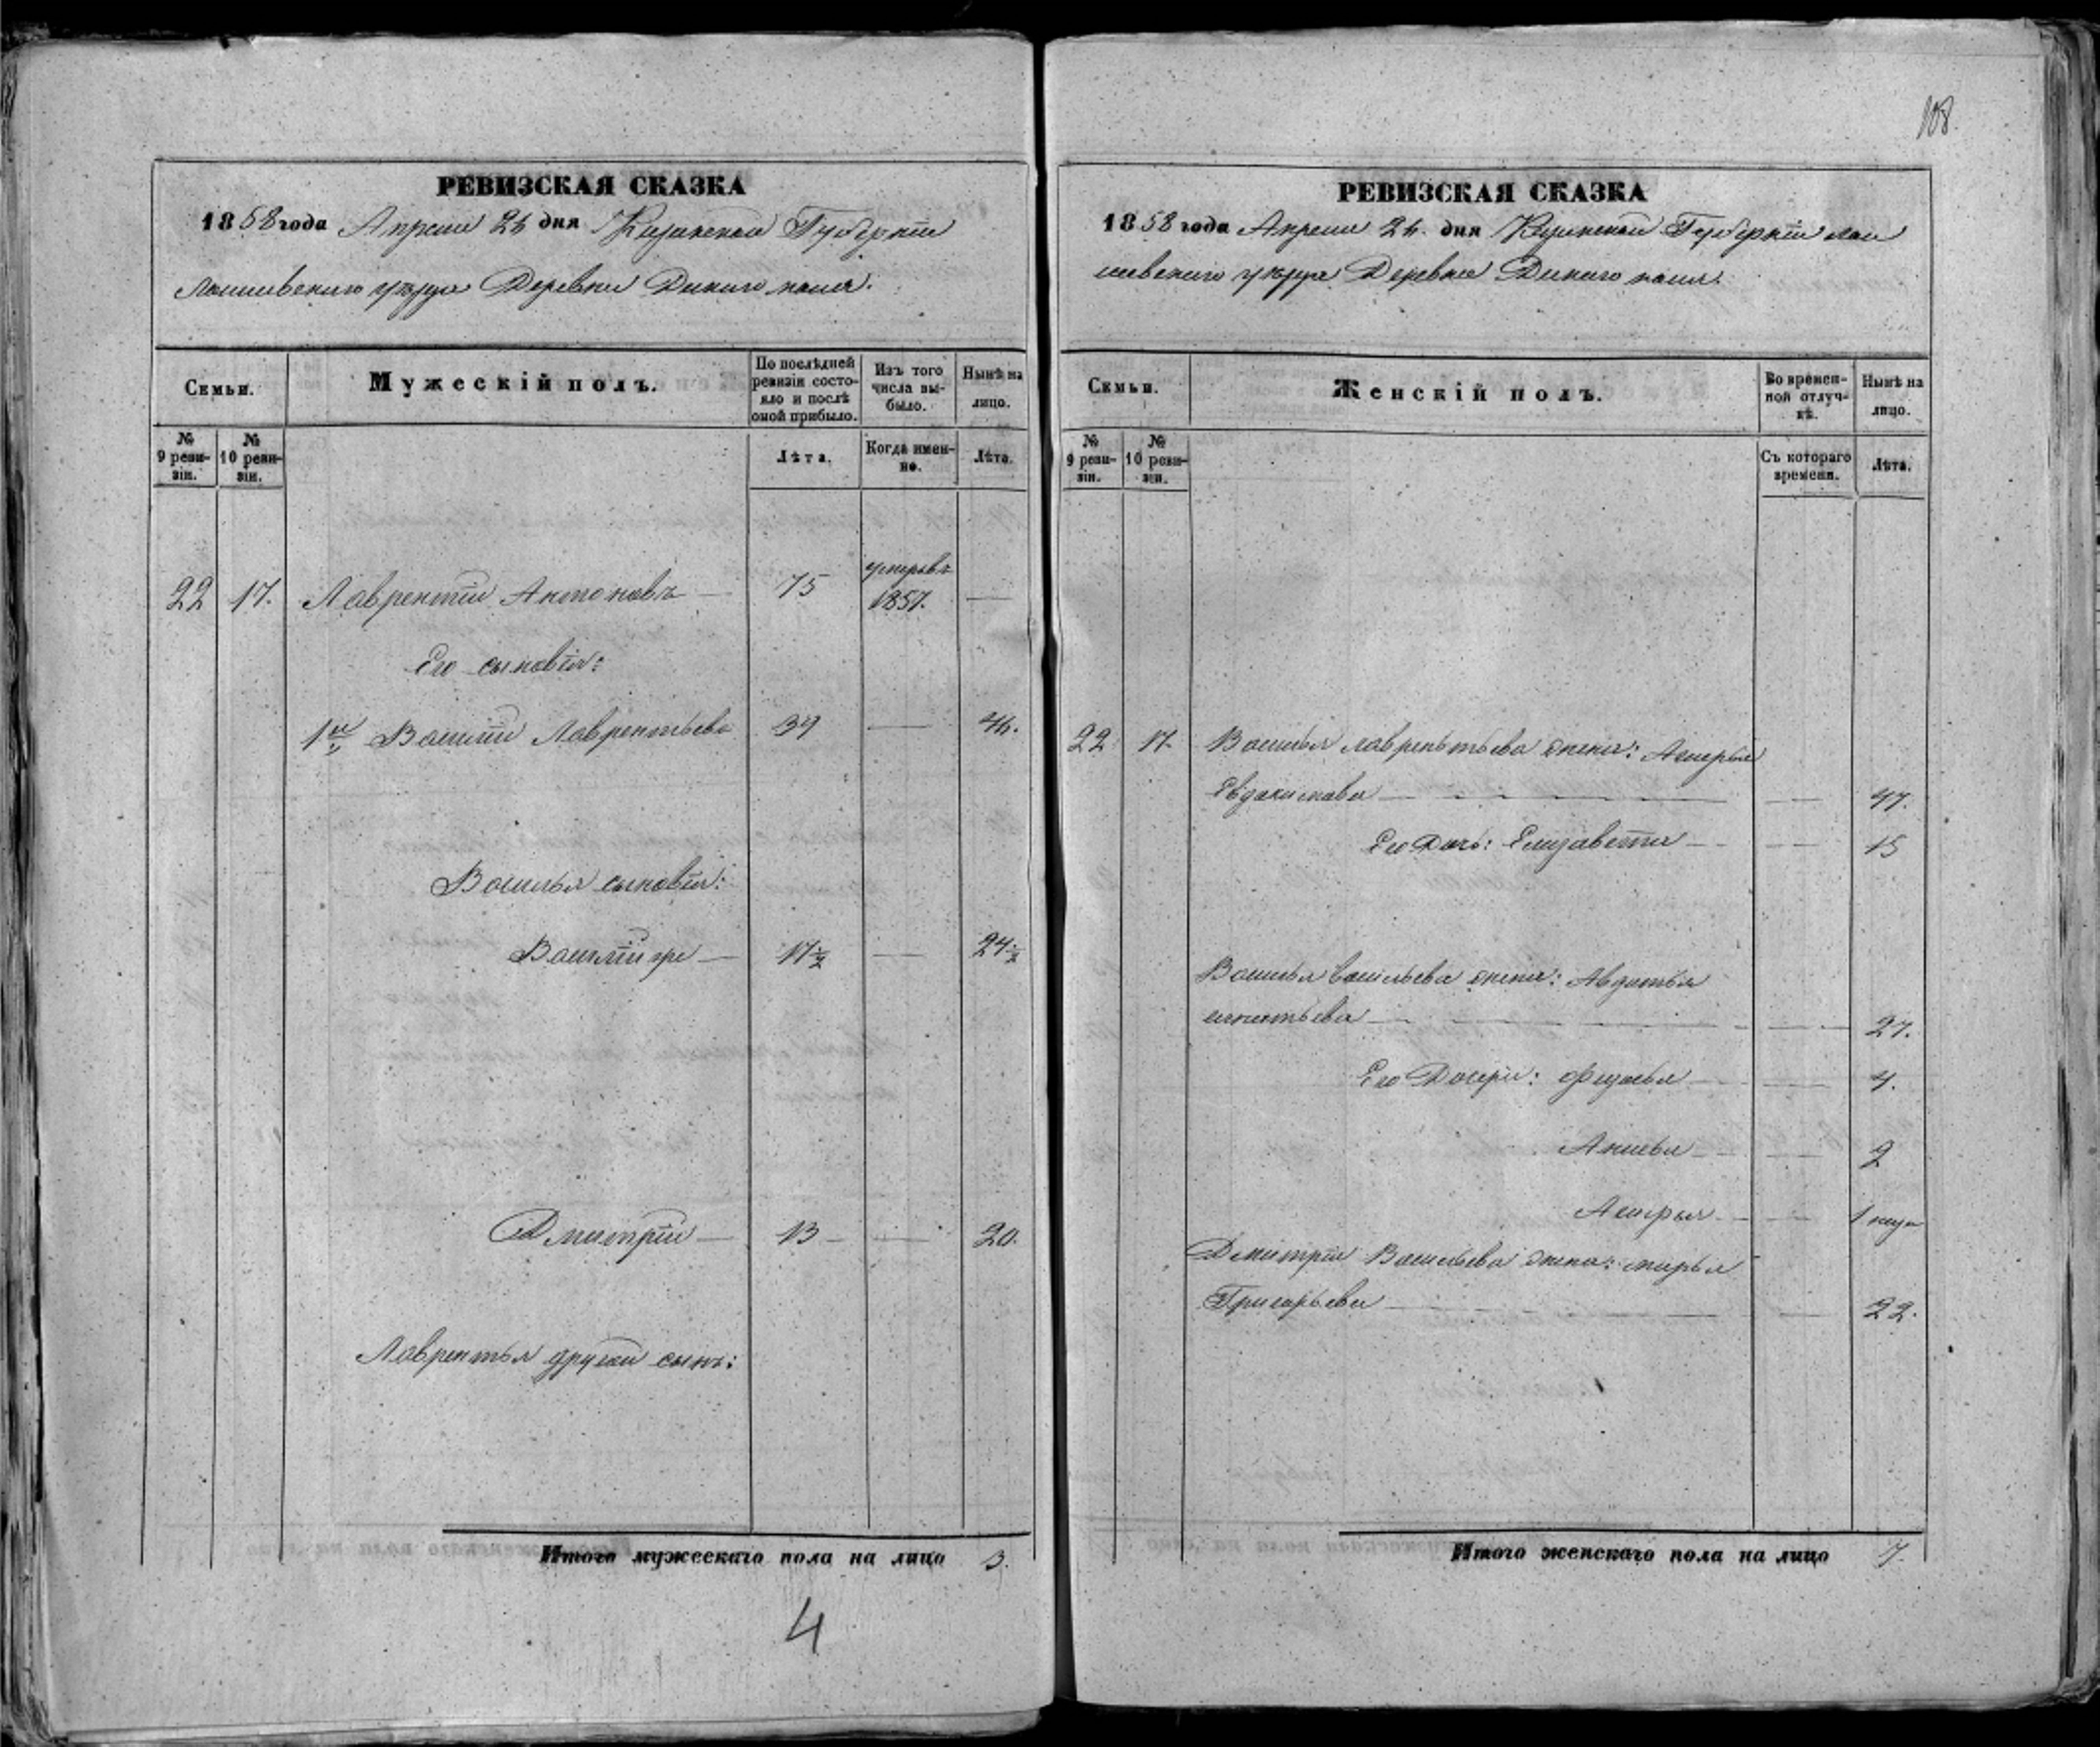 108.
РЕВИЗСКАЯ СКАЗКА
1858 года Апреля 24 дня Казанской Губернiи
Лаишевскаго уѣзда Деревни Дикаго поля.
Семьи.
Мужескiй полъ.
По послѣдней ревизiи состояло и послѣ оной прибыло.
Изъ того числа выбыло.
Нынѣ на лицо.
№ 9 ревизiи.
№ 10 ревизiи.
Лѣта.
Когда именно.
Лѣта.
22 17. Лаврентiй Антоновъ — 75 умеръ въ 1857. —
Его сыновья:
1й Василiй Лаврентьевъ 39 — 46.
Василья сыновья:
Василiй — 17½ — 24½
Дмитрiй — 13 — 20.
Лаврентья другой сынъ:
Итого мужескаго пола на лицо 3.
4
РЕВИЗСКАЯ СКАЗКА
1858 года Апреля 24. дня Казанской Губернiи Лаи
шевскаго уѣзда Деревни Дикаго поля.
Семьи.
Женскiй полъ.
Во временной отлучкѣ.
Нынѣ на лицо.
№ 9 ревизiи.
№ 10 ревизiи.
Съ котораго времени.
Лѣта.
22 17. Василья Лаврентьева жена:
Евдокимова — — 47.
Его Дочь: Елизавета — — 15
Василья Васильева жена: Авдотья
Игнатьева — — 27.
Его Дочери: — — 4.
— — 2
— — 1
Дмитрiя Васильева жена: Марья
Григорьева — — 22.
Итого женскаго пола на лицо 7.